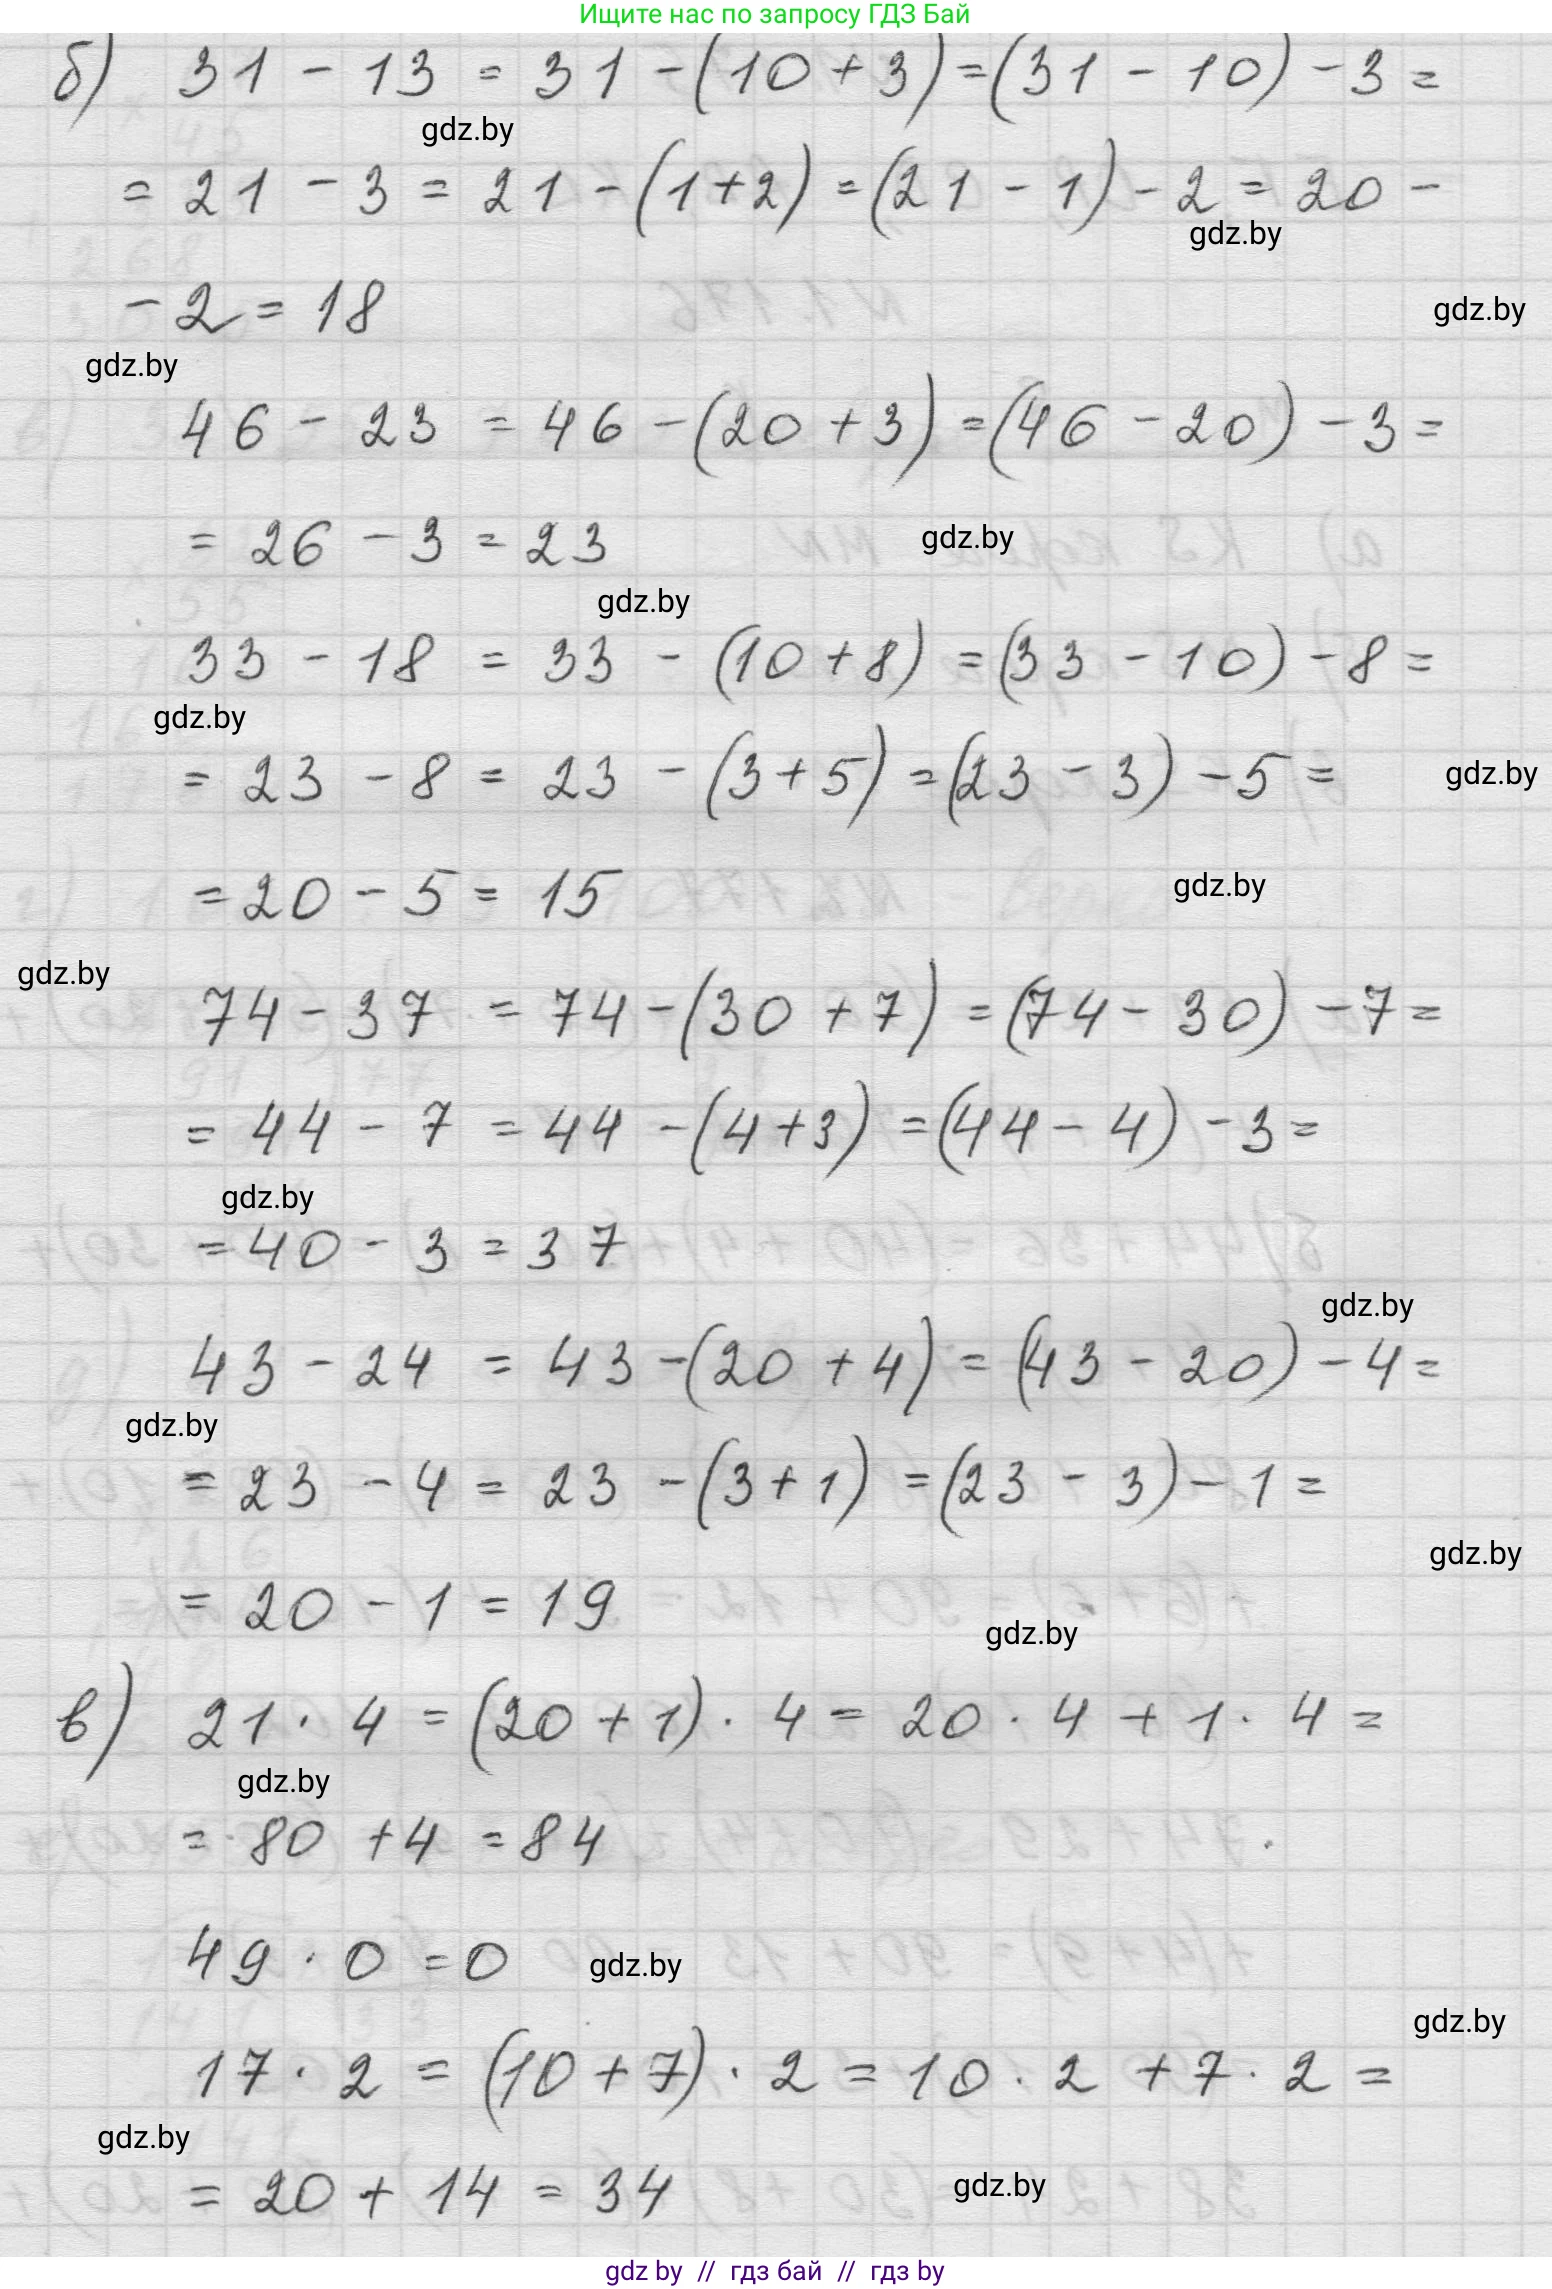 Ищите нас по запросу ГДЗ Бай
б) 31 - 13 = 31 - (10 + 3) = (31 - 10) - 3 =
gdz.by
= 21 - 3 = 21 - (1+2) = (21 - 1) - 2 = 20 -
gdz.by
- 2 = 18
gdz.by
gdz.by
46 - 23 = 46 - (20 + 3) = (46 - 20) - 3 =
= 26 - 3 = 23
gdz.by
gdz.by
33 - 18 = 33 - (10 + 8) = (33 - 10) - 8 =
gdz.by
= 23 - 8 = 23 - (3 + 5) = (23 - 3) - 5 =
gdz.by
= 20 - 5 = 15
gdz.by
gdz.by
74 - 37 = 74 - (30 + 7) = (74 - 30) - 7 =
= 44 - 7 = 44 - (4 + 3) = (44 - 4) - 3 =
gdz.by
= 40 - 3 = 37
gdz.by
43 - 24 = 43 - (20 + 4) = (43 - 20) - 4 =
gdz.by
= 23 - 4 = 23 - (3 + 1) = (23 - 3) - 1 =
gdz.by
= 20 - 1 = 19
gdz.by
в) 21 · 4 = (20 + 1) · 4 = 20 · 4 + 1 · 4 =
gdz.by
= 80 + 4 = 84
49 · 0 = 0
gdz.by
gdz.by
17 · 2 = (10 + 7) · 2 = 10 · 2 + 7 · 2 =
gdz.by
= 20 + 14 = 34
gdz.by
gdz by // гдз бай // гдз by